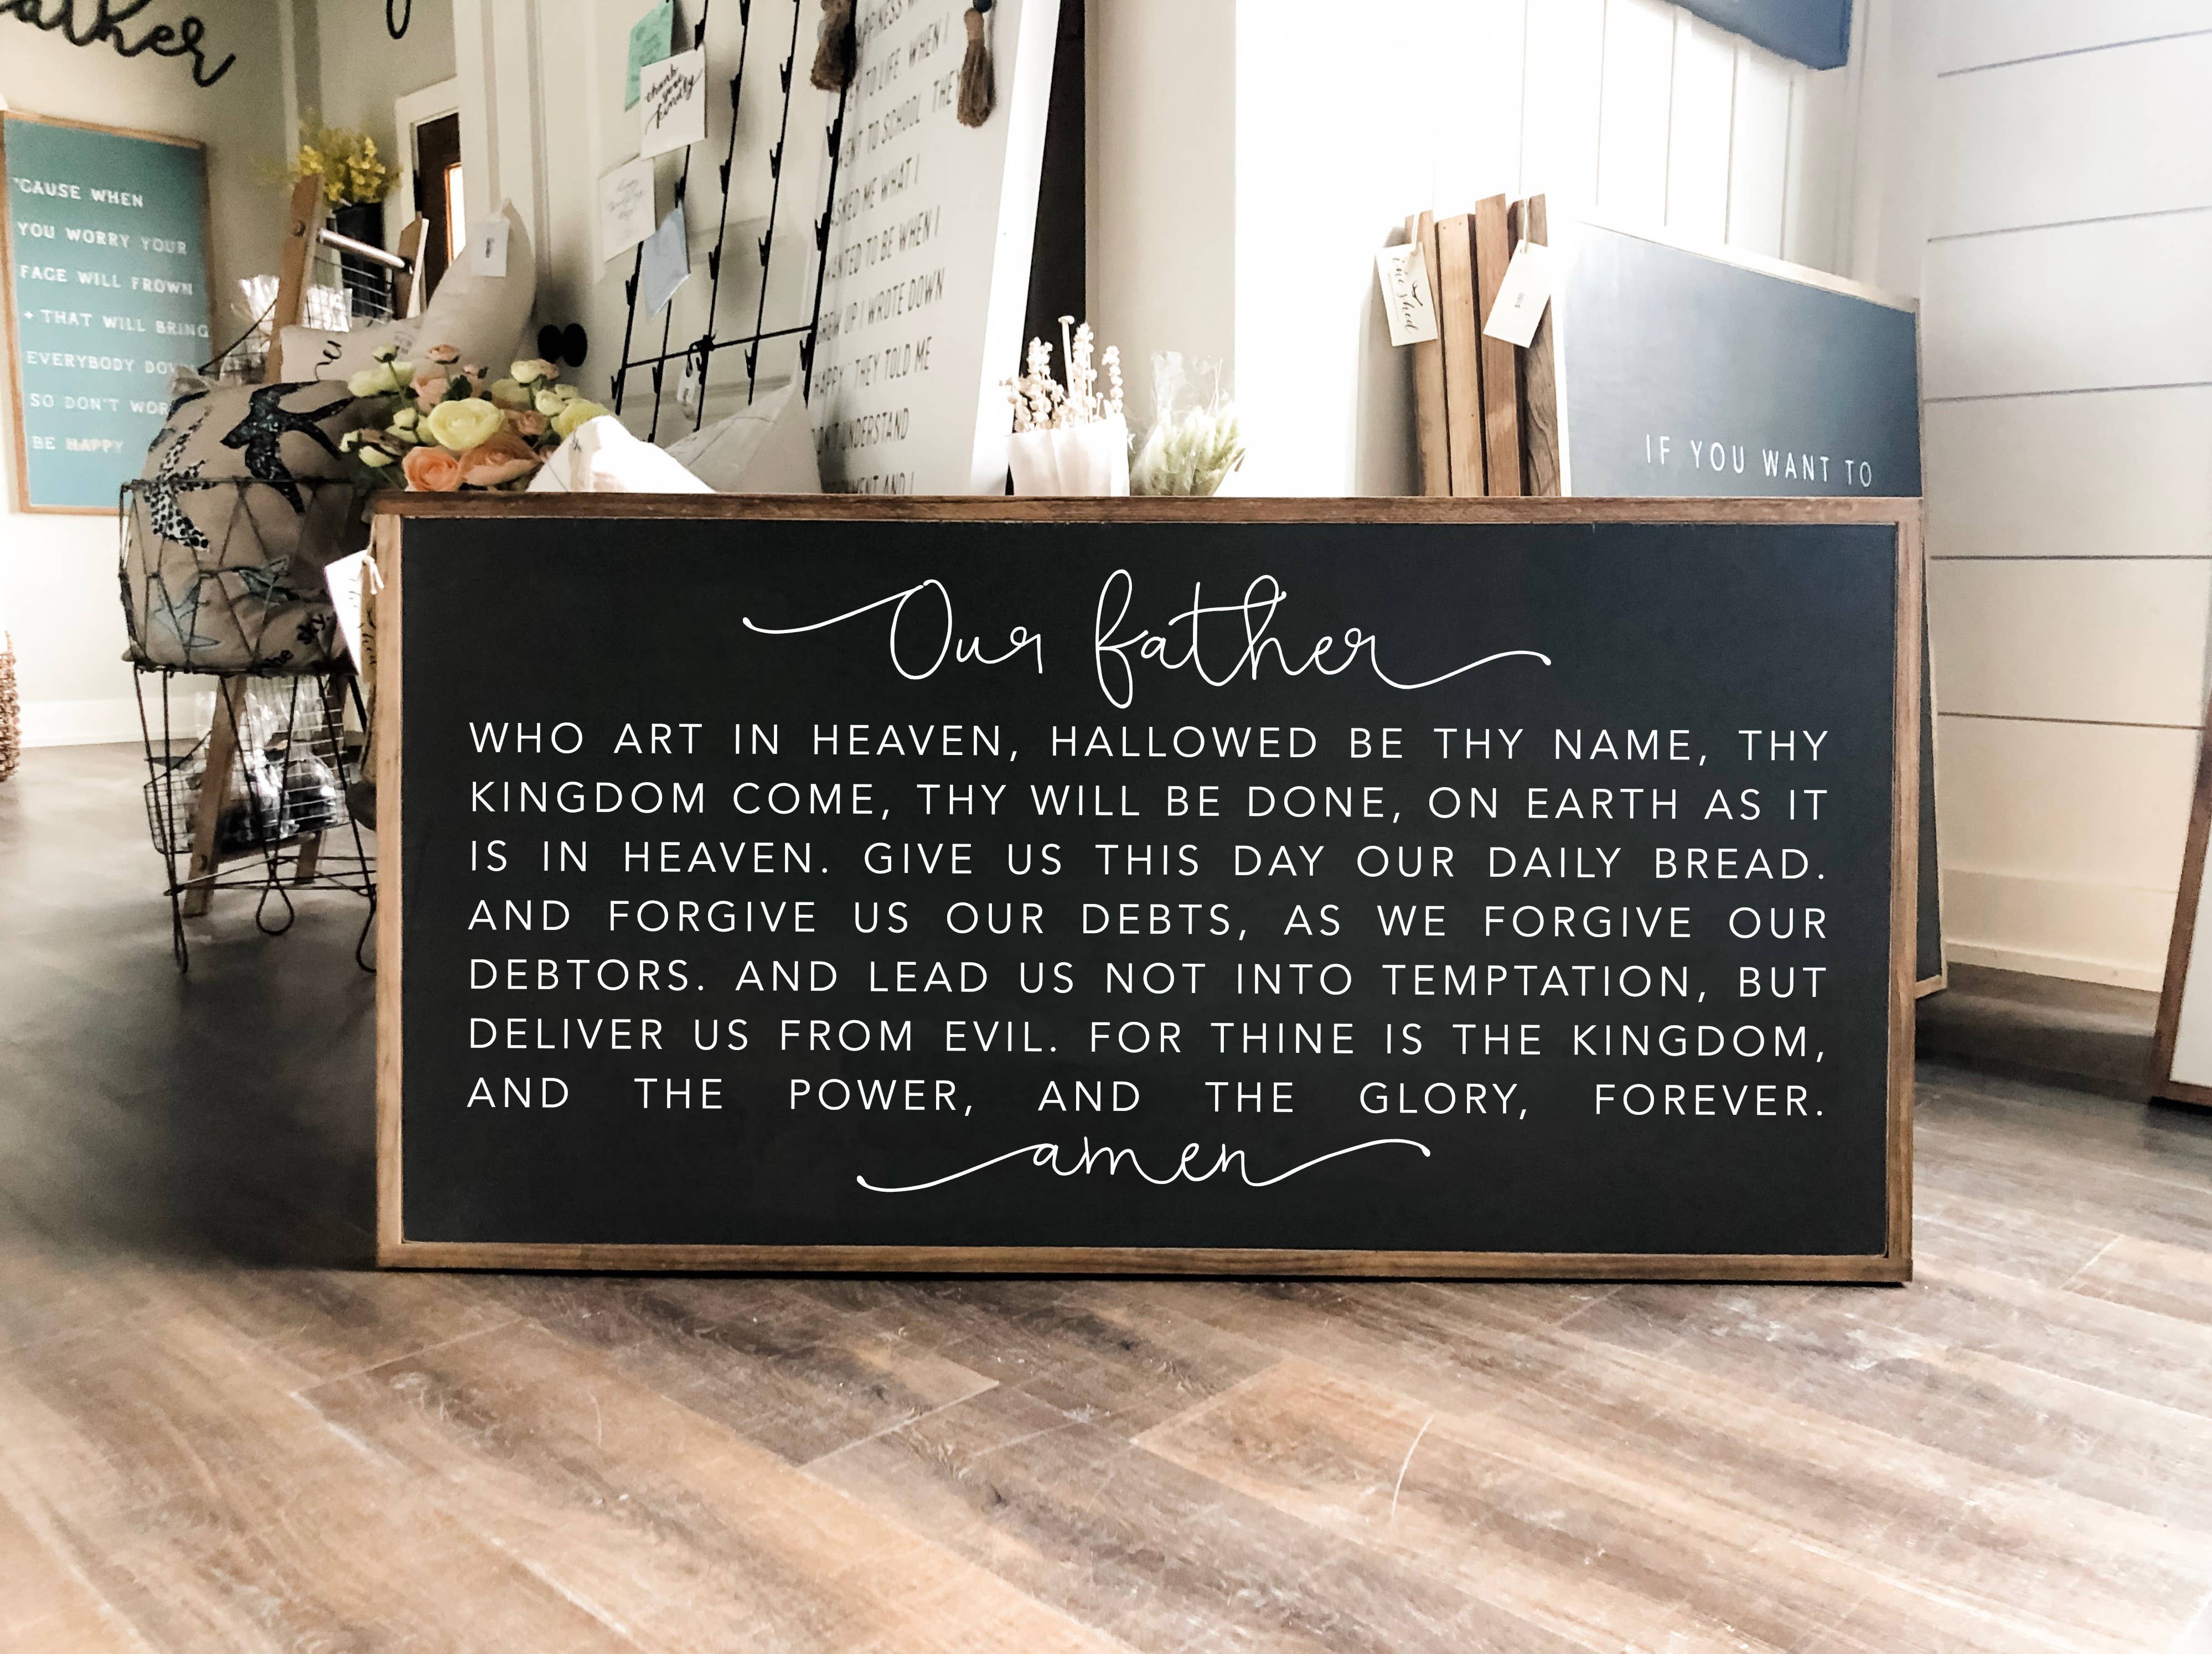 ather
'CAUSE WHEN
YOU WORRY YOUR
FACE WILL FROWN
+ THAT WILL BRING
EVERYBODY
SO DON'T
BE HAPPY
thank
you
kindly
TO LIFE. WHEN I
TO SCHOOL, THEY
ASKED ME WHAT I
WANTED TO BE WHEN I
GREW UP. I WROTE DOWN
"HAPPY". THEY TOLD ME
UNDERSTAND
AND I
IF YOU WANT TO
Our father
WHO ART IN HEAVEN, HALLOWED BE THY NAME, THY
KINGDOM COME, THY WILL BE DONE, ON EARTH AS IT
IS IN HEAVEN. GIVE US THIS DAY OUR DAILY BREAD.
AND FORGIVE US OUR DEBTS, AS WE FORGIVE OUR
DEBTORS. AND LEAD US NOT INTO TEMPTATION, BUT
DELIVER US FROM EVIL. FOR THINE IS THE KINGDOM,
AND THE POWER, AND THE GLORY, FOREVER.
amen